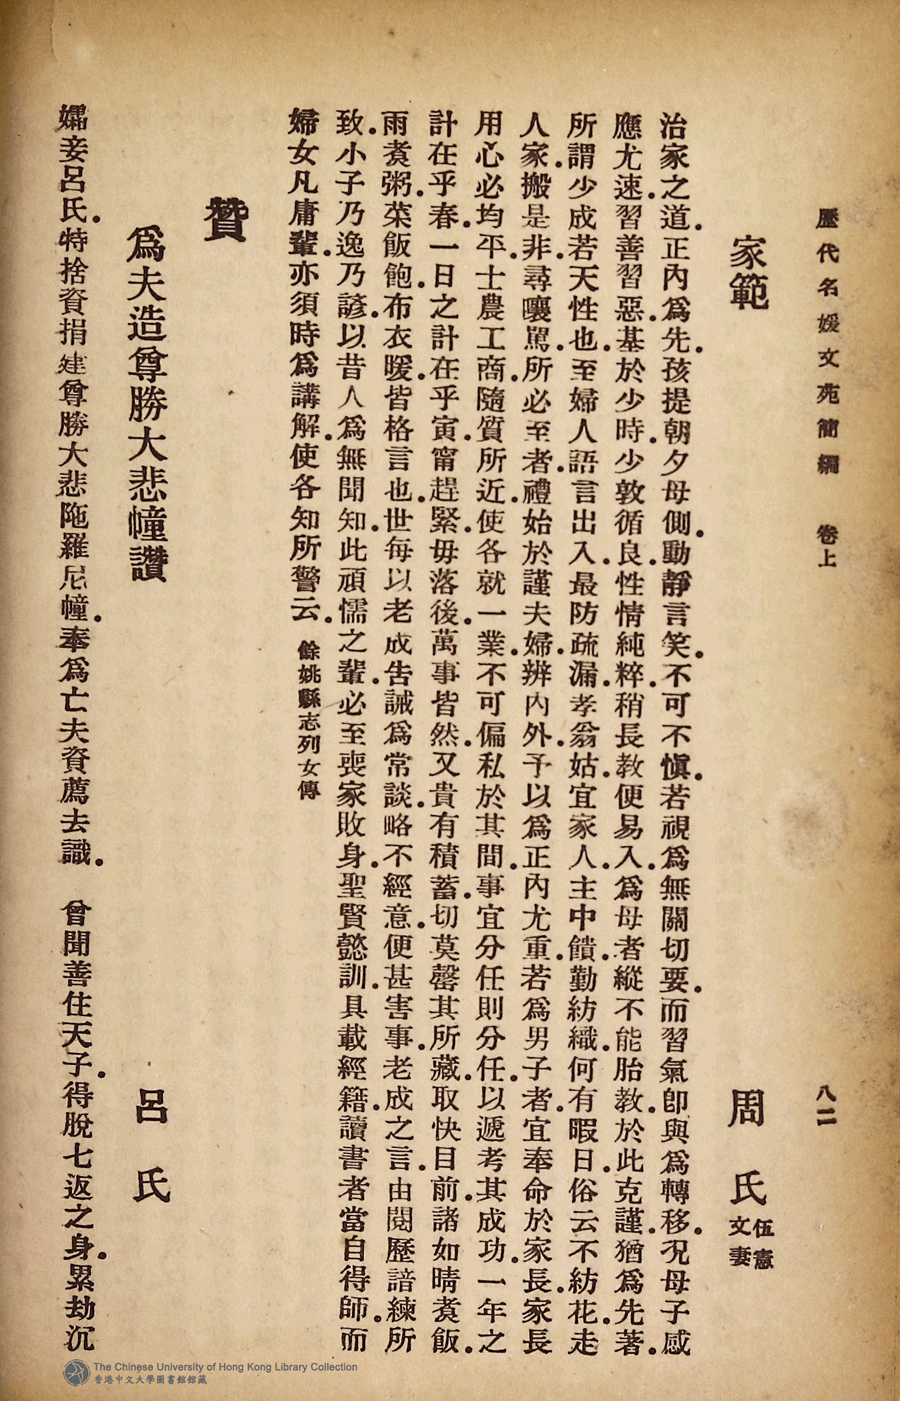 歷代名媛文苑簡編 卷上
八二
家範
周 氏 伍憲文妻
治家之道。正內爲先。孩提朝夕母側。動靜言笑。不可不愼。若視爲無關切要。而習氣卽與爲轉移。况母子感
應尤速。習善習惡。基於少時。少敦循良。性情純粹。稍長敎便易入。爲母者縱不能胎敎。於此克謹。猶爲先著。
所謂少成若天性也。至婦人語言出入。最防疏漏。孝翁姑。宜家人。主中饋。勤紡織。何有暇日。俗云不紡花。走
人家。搬是非。尋嚷駡。所必至者。禮始於謹夫婦。辨內外。予以爲正內尤重。若爲男子者。宜奉命於家長。家長
用心必均平。士農工商。隨質所近。使各就一業。不可偏私於其間。事宜分任則分任。以遞考其成功。一年之
計在乎春。一日之計在乎寅。甯趕緊。毋落後。萬事皆然。又貴有積蓄。切莫罄其所藏。取快目前。諸如晴煮飯。
雨煮粥。菜飯飽。布衣暖。皆格言也。世每以老成吿誡爲常談。略不經意。便甚害事。老成之言。由閱歷諳練所
致。小子乃逸乃諺。以昔人爲無聞知。此頑懦之輩。必至喪家敗身。聖賢懿訓。具載經籍。讀書者當自得師。而
婦女凡庸輩。亦須時爲講解。使各知所警云。 餘姚縣志列女傳
贊
爲夫造尊勝大悲幢讚
呂 氏
孀妾呂氏。特捨資捐建尊勝大悲陁羅尼幢。奉爲亡夫資薦去識。 曾聞善住天子。得脫七返之身。累劫沉
The Chinese University of Hong Kong Library Collection
香港中文大學圖書館館藏